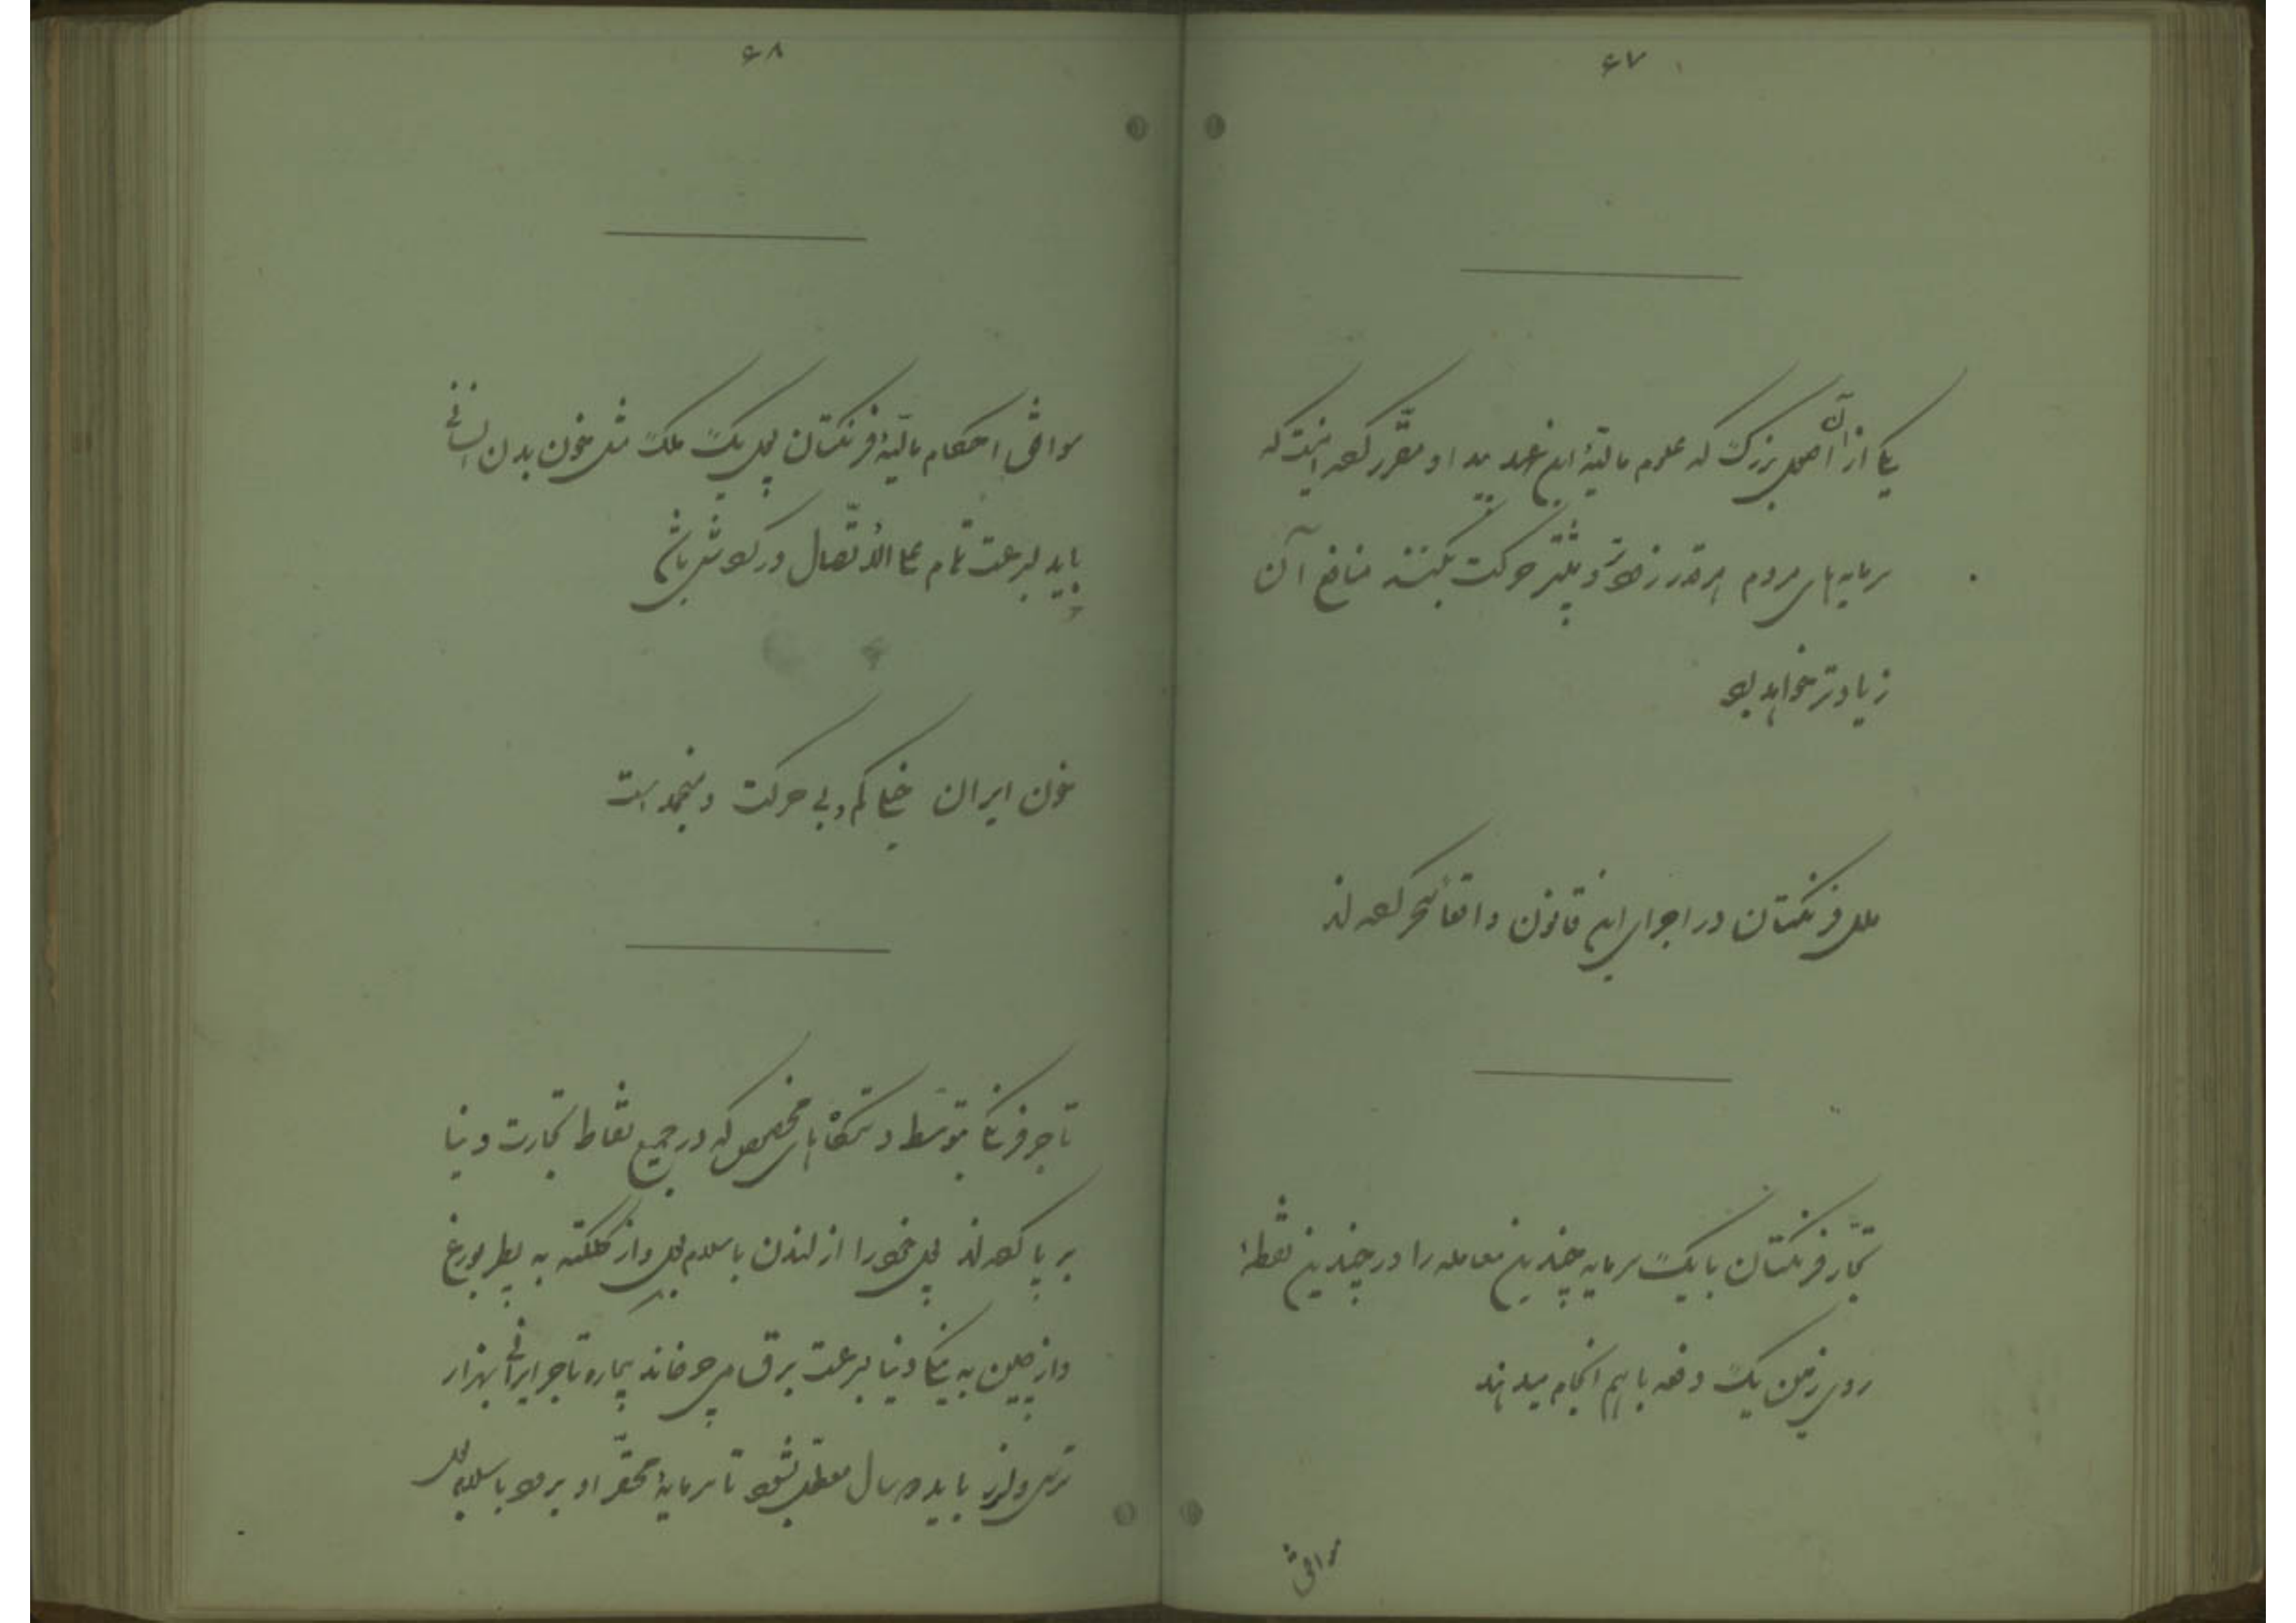 ۶۷
یکی از آن اصول بزرگ که علوم مالیّهٔ این عهد پیدا و مقرّر کرده اینست که
سرمایه‌های مردم هر قدر زودتر و بیشتر حرکت بکنند منافع آن
زیادتر خواهد بود
ملل فرنگستان در اجرای این قانون واقعاً سحر کرده‌اند
تجّار فرنگستان با یک سرمایه چندین معامله را در چندین نقطهٔ
روی زمین یک دفعه با هم انجام میدهند
موافق
۶۸
موافق احکام مالیّهٔ فرنگستان پول یک ملک مثل خون بدن انسانی
باید بسرعت تمام علی الاتّصال در گردش باشد
خون ایران خیلی کم و بی حرکت و منجمد است
تاجر فرنگی بتوسّط دستگاه‌های مخصوص که در جمیع نقاط تجارت دنیا
بر پا کرده‌اند پول خود را از لندن باسلامبول و از کلکته به پطربورغ
و از چین به ینگی دنیا بسرعت برق می‌چرخاند بیچاره تاجر ایرانی بهزار
ترس و لرز باید ده سال معطّل بشود تا سرمایهٔ محقّر او برود باسلامبول